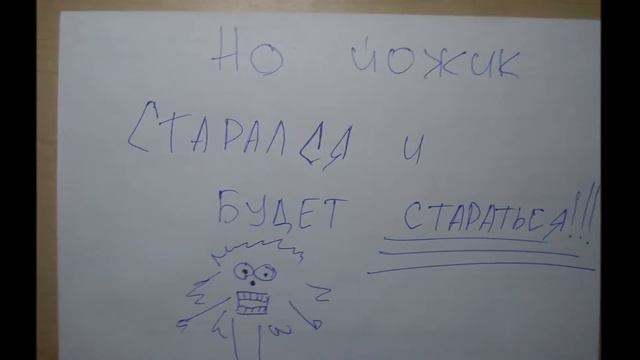 НО ЙОЖИК
СТАРАЛСЯ И
БУДЕТ СТАРАТЬСЯ!!!